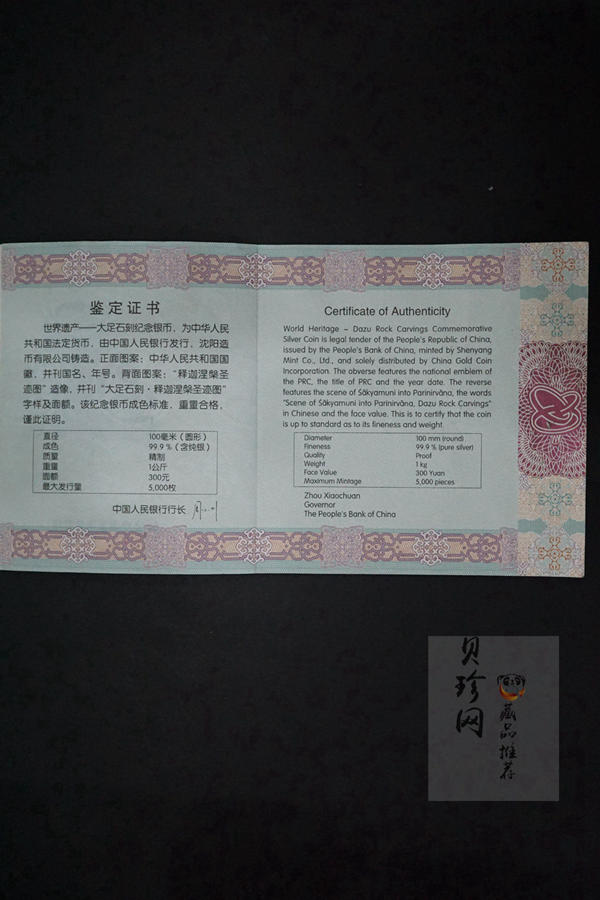 鉴定证书
世界遗产——大足石刻纪念银币，为中华人民
共和国法定货币，由中国人民银行发行，沈阳造
币有限公司铸造。正面图案：中华人民共和国国
徽，并刊国名、年号。背面图案：“释迦涅槃圣
迹图”造像，并刊“大足石刻·释迦涅槃圣迹图”
字样及面额。该纪念银币成色标准，重量合格，
谨此证明。
直径 100毫米（圆形）
成色 99.9％（含纯银）
质量 精制
重量 1公斤
面额 300元
最大发行量 5,000枚
中国人民银行行长
Certificate of Authenticity
World Heritage – Dazu Rock Carvings Commemorative
Silver Coin is legal tender of the People's Republic of China,
issued by the People's Bank of China, minted by Shenyang
Mint Co., Ltd., and solely distributed by China Gold Coin
Incorporation. The obverse features the national emblem of
the PRC, the title of PRC and the year date. The reverse
features the scene of Śākyamuni into Parinirvāna, the words
"Scene of Śākyamuni into Parinirvāna, Dazu Rock Carvings"
in Chinese and the face value. This is to certify that the coin
is up to standard as to its fineness and weight.
Diameter 100 mm (round)
Fineness 99.9 % (pure silver)
Quality Proof
Weight 1 kg
Face Value 300 Yuan
Maximum Mintage 5,000 pieces
Zhou Xiaochuan
Governor
The People's Bank of China
贝珍网
藏品推荐